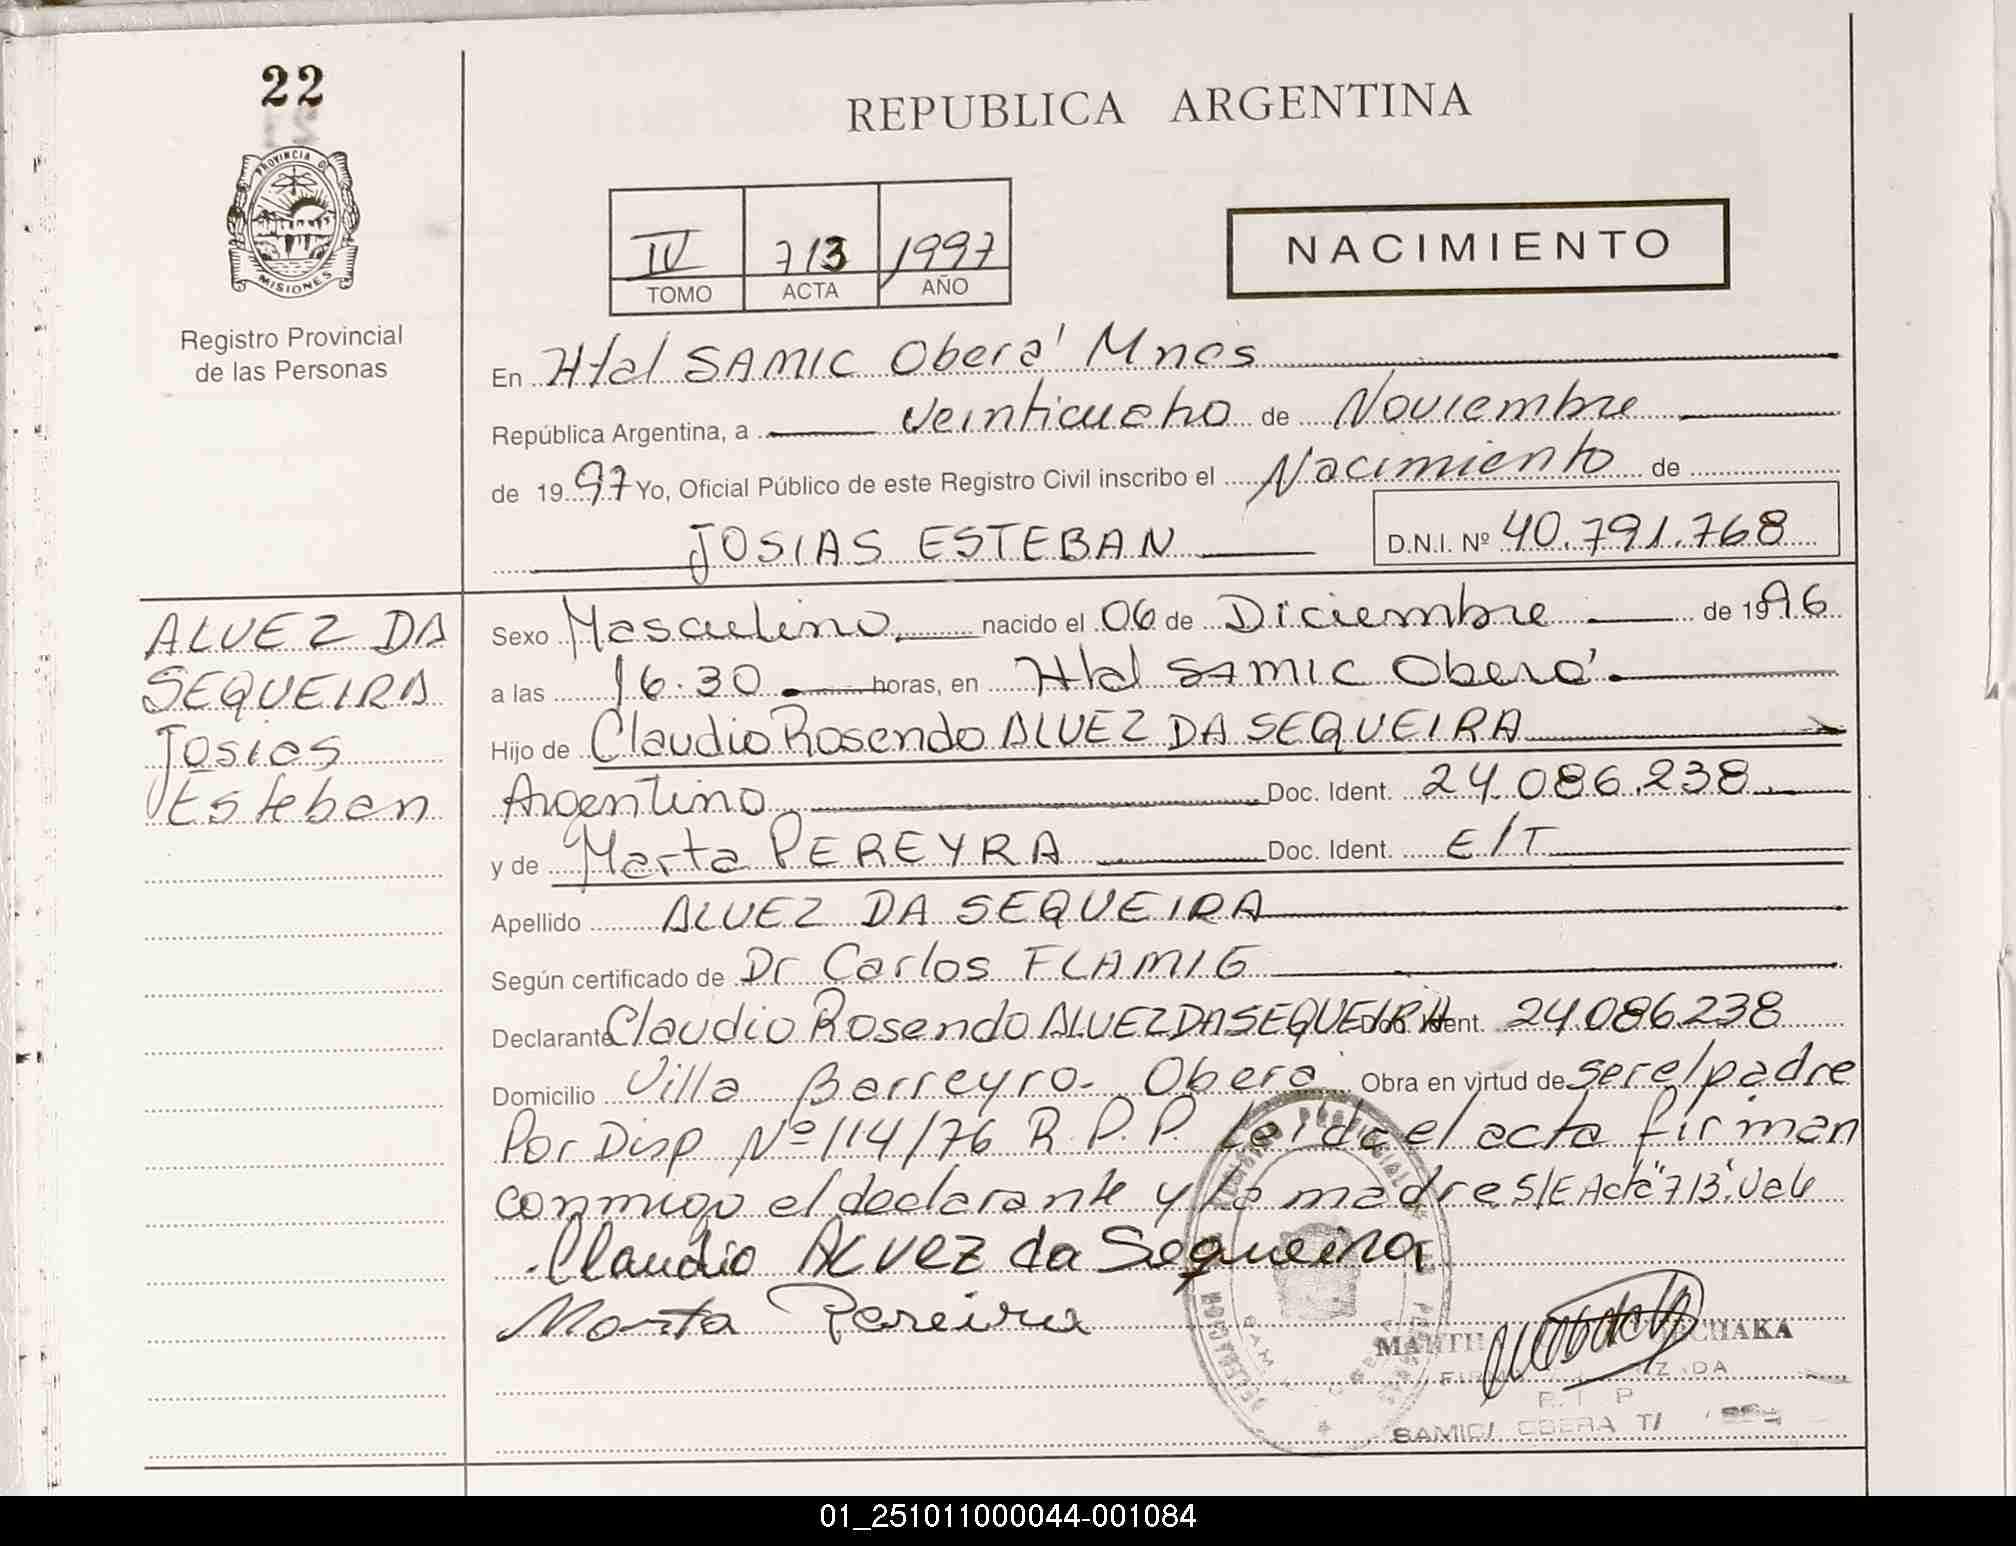 22
PROVINCIA DE
MISIONES
Registro Provincial
de las Personas
REPUBLICA ARGENTINA
IV 713 1997
TOMO ACTA AÑO
NACIMIENTO
En Htal SAMIC Oberá Mnes
República Argentina, a veinticuatro de Noviembre
de 1997 Yo, Oficial Público de este Registro Civil inscribo el Nacimiento de
JOSIAS ESTEBAN D.N.I. Nº 40.791.768
ALVEZ DA
SEQUEIRA
Josias
Esteban
Sexo Masculino nacido el 06 de Diciembre de 1996
a las 16.30 horas, en Htal SAMIC Oberá
Hijo de Claudio Rosendo ALVEZ DA SEQUEIRA
Argentino Doc. Ident. 24.086.238
y de Marta PEREYRA Doc. Ident. E/T
Apellido ALVEZ DA SEQUEIRA
Según certificado de Dr Carlos FLAMIG
Declarante Claudio Rosendo ALVEZ DA SEQUEIRA Doc. Ident. 24.086.238
Domicilio Villa Barreyro - Obera Obra en virtud de ser el padre
Por Disp Nº 114/76 R.P.P. Leída el acta firman
conmigo el declarante y la madre S/E Acta "713" Vale
Claudio ALVEZ da Sequeira
Marta Pereira
SAMIC/ OBERA
01_251011000044-001084